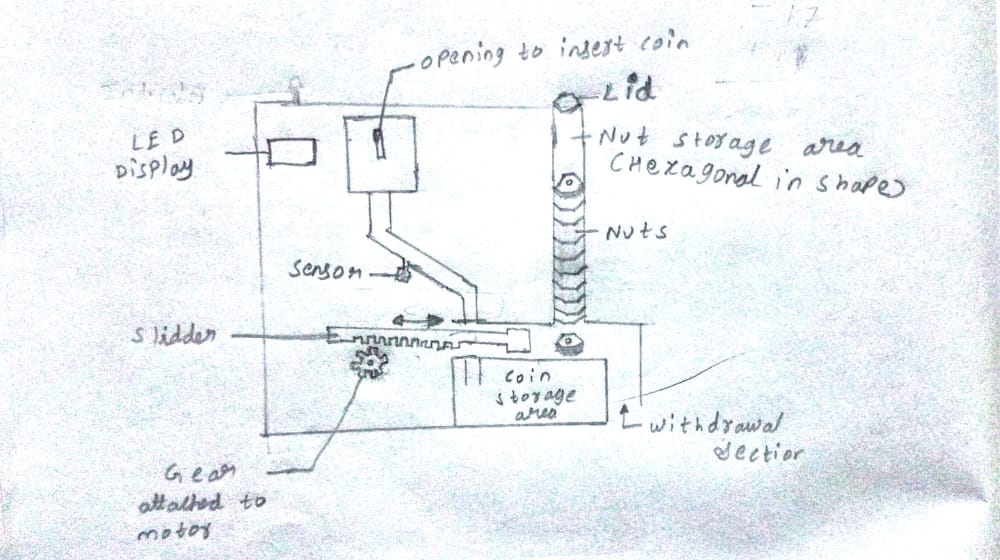 opening to insert coin
Lid
LED
Display
Nut storage area
(Hexagonal in shape)
Nuts
Sensor
Slidder
coin
storage
area
withdrawal
Section
Gear
attached to
motor